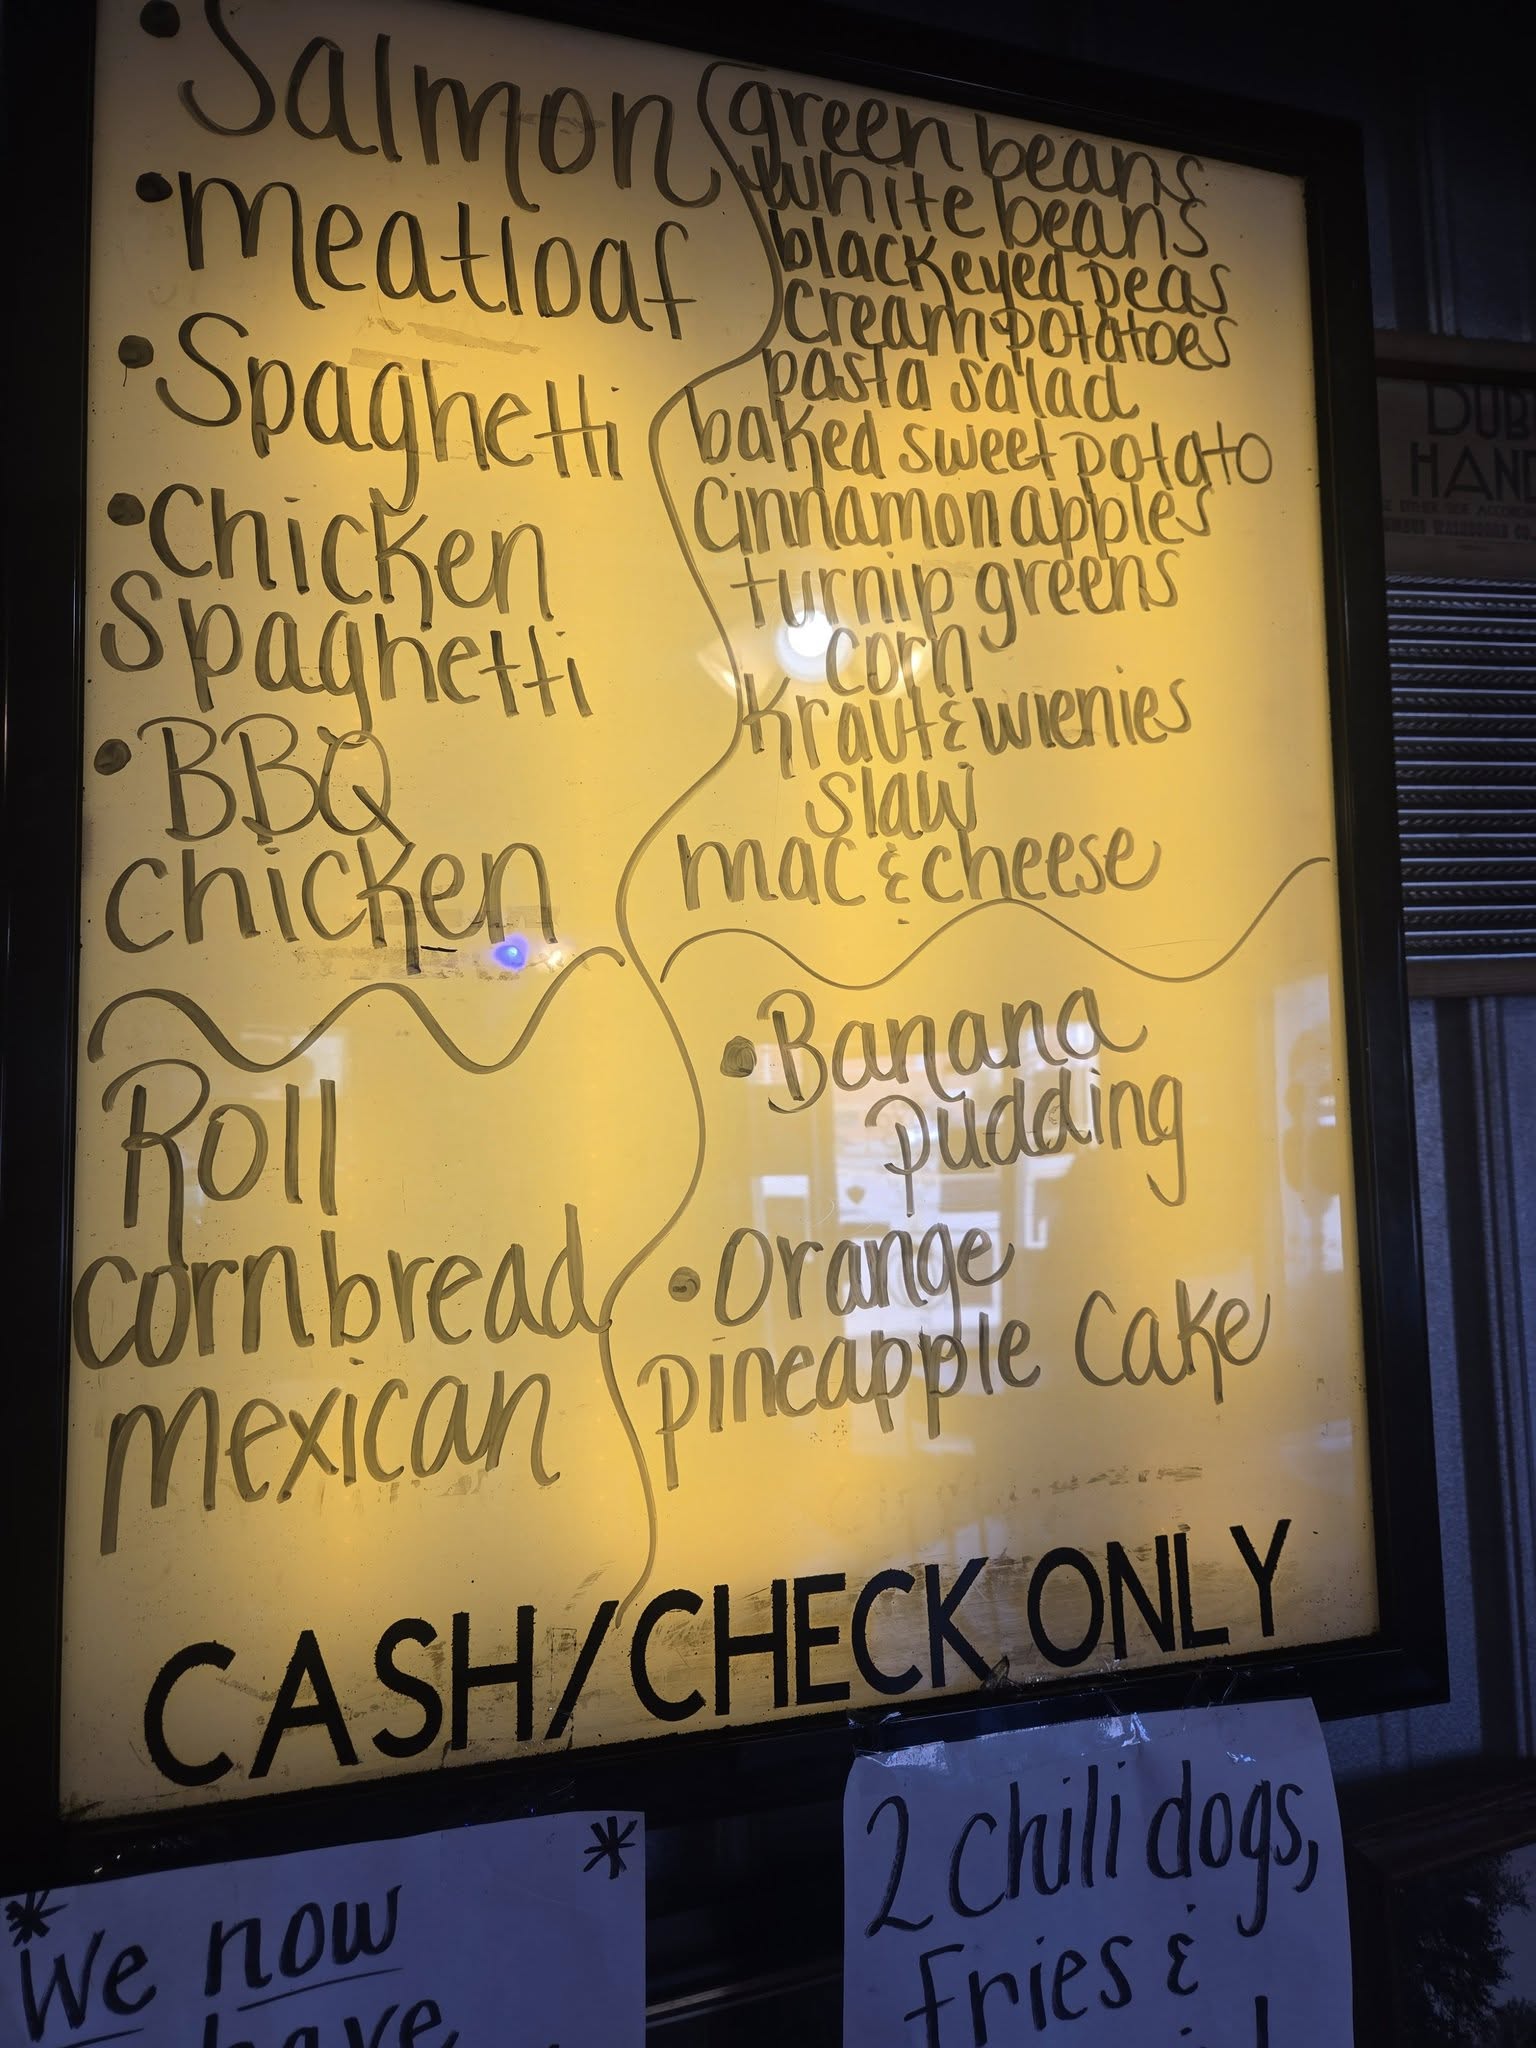 • Salmon
• Meatloaf
• Spaghetti
• Chicken
Spaghetti
• BBQ
chicken
Roll
cornbread
Mexican
green beans
white beans
blackeyed peas
cream potatoes
pasta salad
baked sweet potato
Cinnamon apples
turnip greens
corn
Kraut & wienies
slaw
mac & cheese
• Banana
pudding
• Orange
pineapple Cake
CASH/CHECK ONLY
* *
We now
have
2 chili dogs,
Fries &